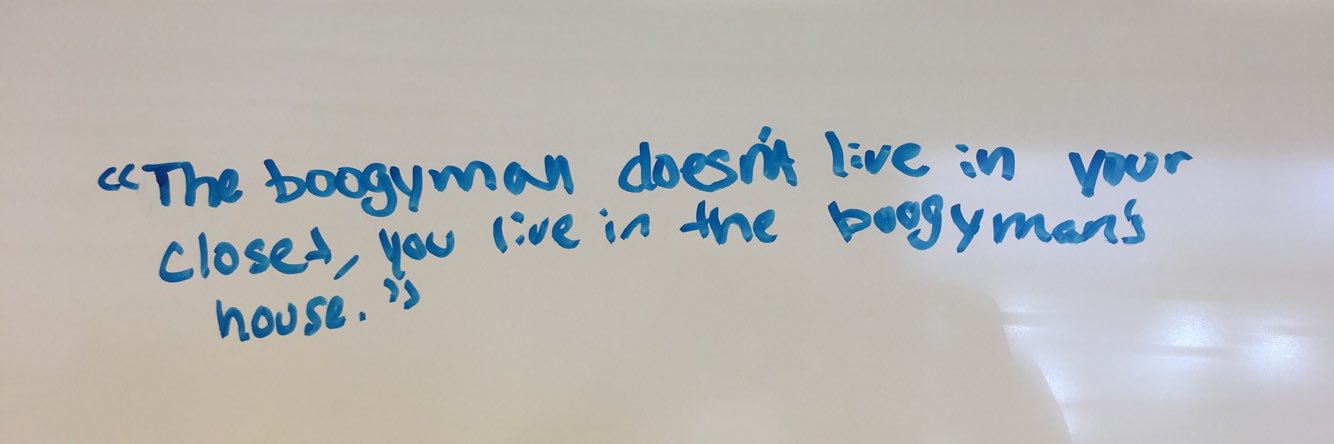 "The boogyman doesn't live in your
closet, you live in the boogyman's
house."